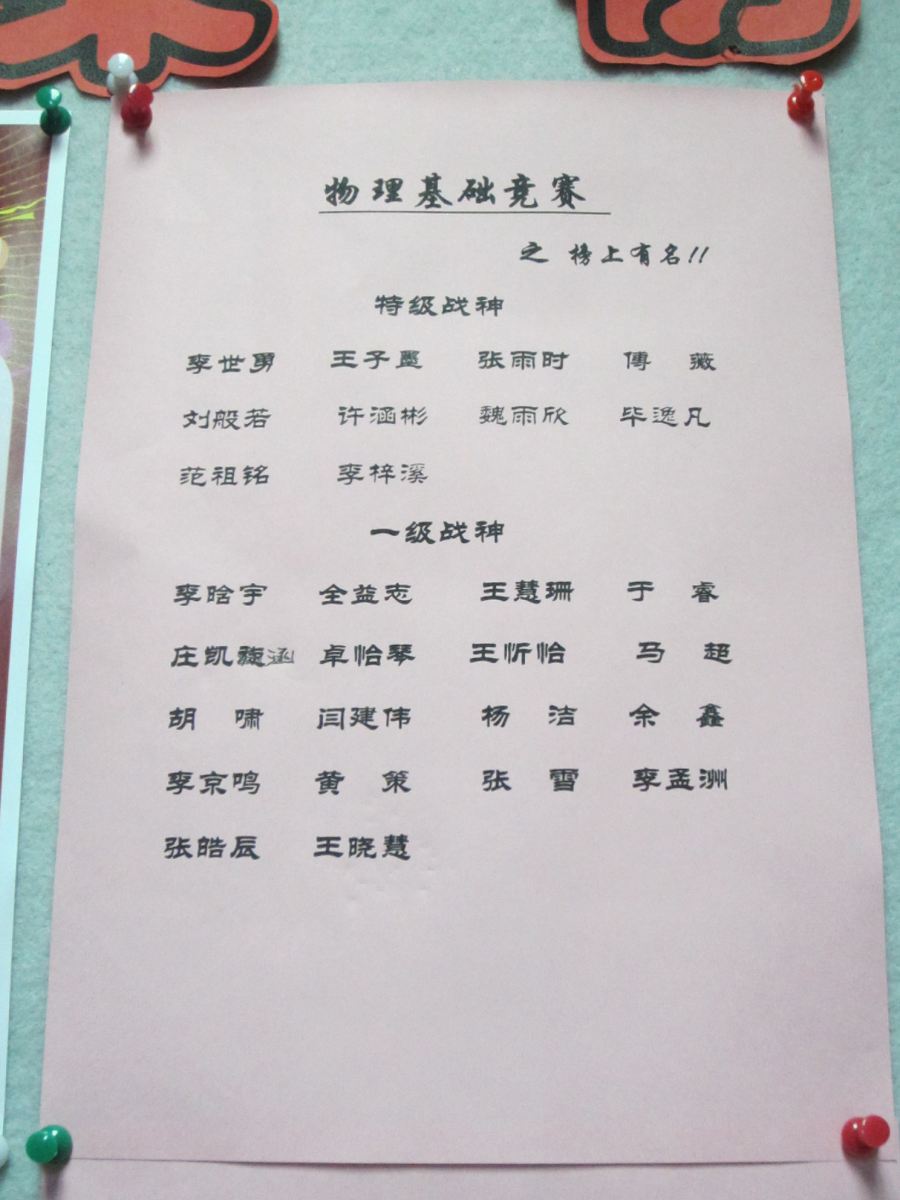 物理基础竞赛
之 榜上有名!!
特级战神
李世勇 王子墨 张雨时 傅 薇
刘般若 许涵彬 魏雨欣 毕逸凡
范祖铭 李梓溪
一级战神
李晗宇 全益志 王慧珊 于 睿
庄凯 涵 卓怡琴 王忻怡 马 超
胡 啸 闫建伟 杨 洁 余 鑫
李京鸣 黄 策 张 雪 李孟洲
张皓辰 王晓慧